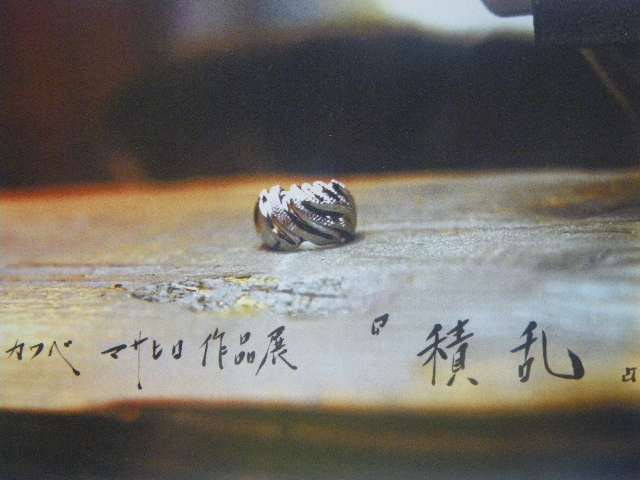 カワベ マサヒロ 作品展 『積乱』